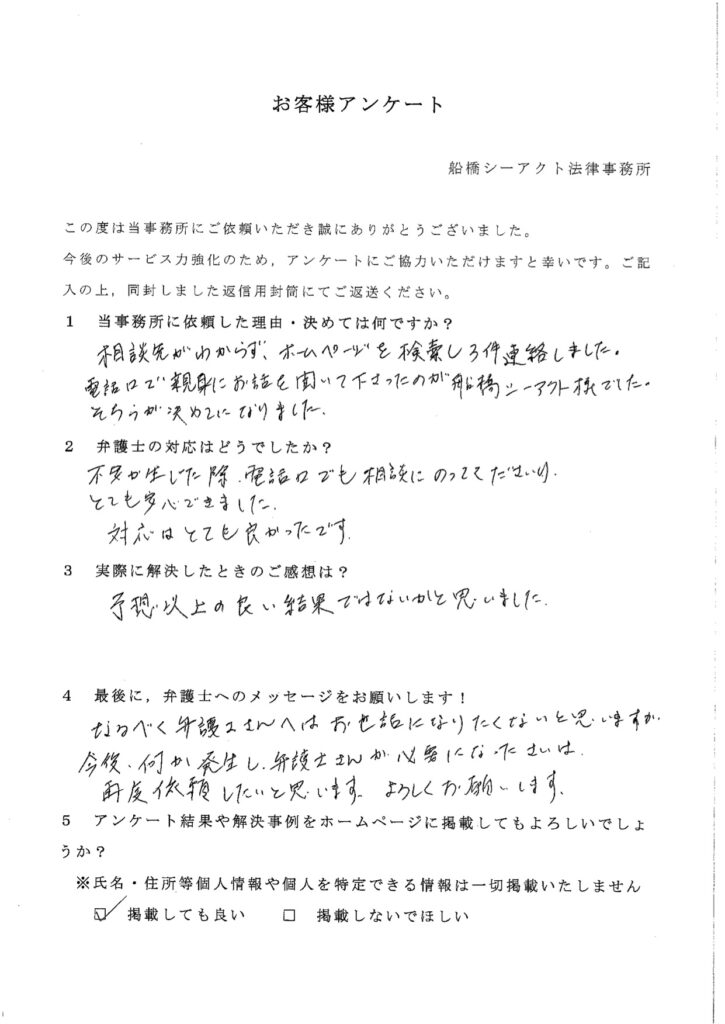 お客様アンケート
船橋シーアクト法律事務所
この度は当事務所にご依頼いただき誠にありがとうございました。
今後のサービス力強化のため，アンケートにご協力いただけますと幸いです。ご記
入の上，同封しました返信用封筒にてご返送ください。
1 当事務所に依頼した理由・決めては何ですか？
相談先がわからず、ホームページを検索し3件連絡しました。
電話口で親身にお話を聞いて下さったのが船橋シーアクト様でした。
そちらが決めてになりました.
2 弁護士の対応はどうでしたか？
不安が生じた際、電話口でも相談にのってくださり.
とても安心できました.
対応はとても良かったです.
3 実際に解決したときのご感想は？
予想以上の良い結果ではないかと思いました.
4 最後に，弁護士へのメッセージをお願いします！
なるべく弁護士さんへはお世話になりたくないと思いますが.
今後、何か発生し、弁護士さんが必要になったさいは.
再度依頼したいと思います. よろしくお願いします.
5 アンケート結果や解決事例をホームページに掲載してもよろしいでしょ
うか？
※氏名・住所等個人情報や個人を特定できる情報は一切掲載いたしません
☑ 掲載しても良い □ 掲載しないでほしい